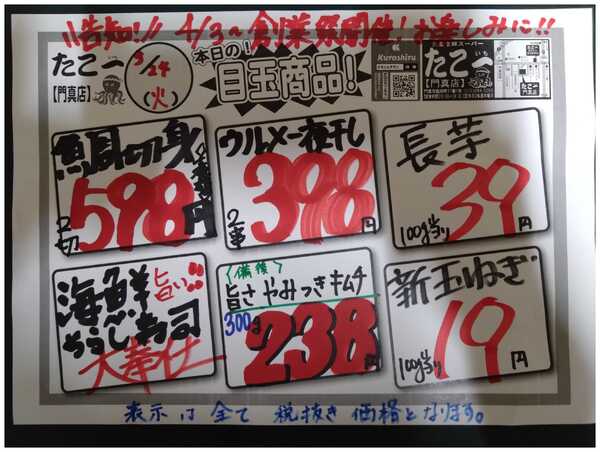 告知!! 4/3〜創業祭開催!お楽しみに!!
たこ一
【門真店】
3/24
(火)
本日の!
目玉商品!
Kuroshiru
たこ一
いち
【門真店】
切身
598円
2切
ウルメ一夜干し
2串
398円
長芋
100g当り
39円
海鮮
旨い
ちらし寿司
大奉仕
〈備後〉
旨さやみつきキムチ
300g
238円
新玉ねぎ
100g当り
19円
表示は全て税抜き価格となります。